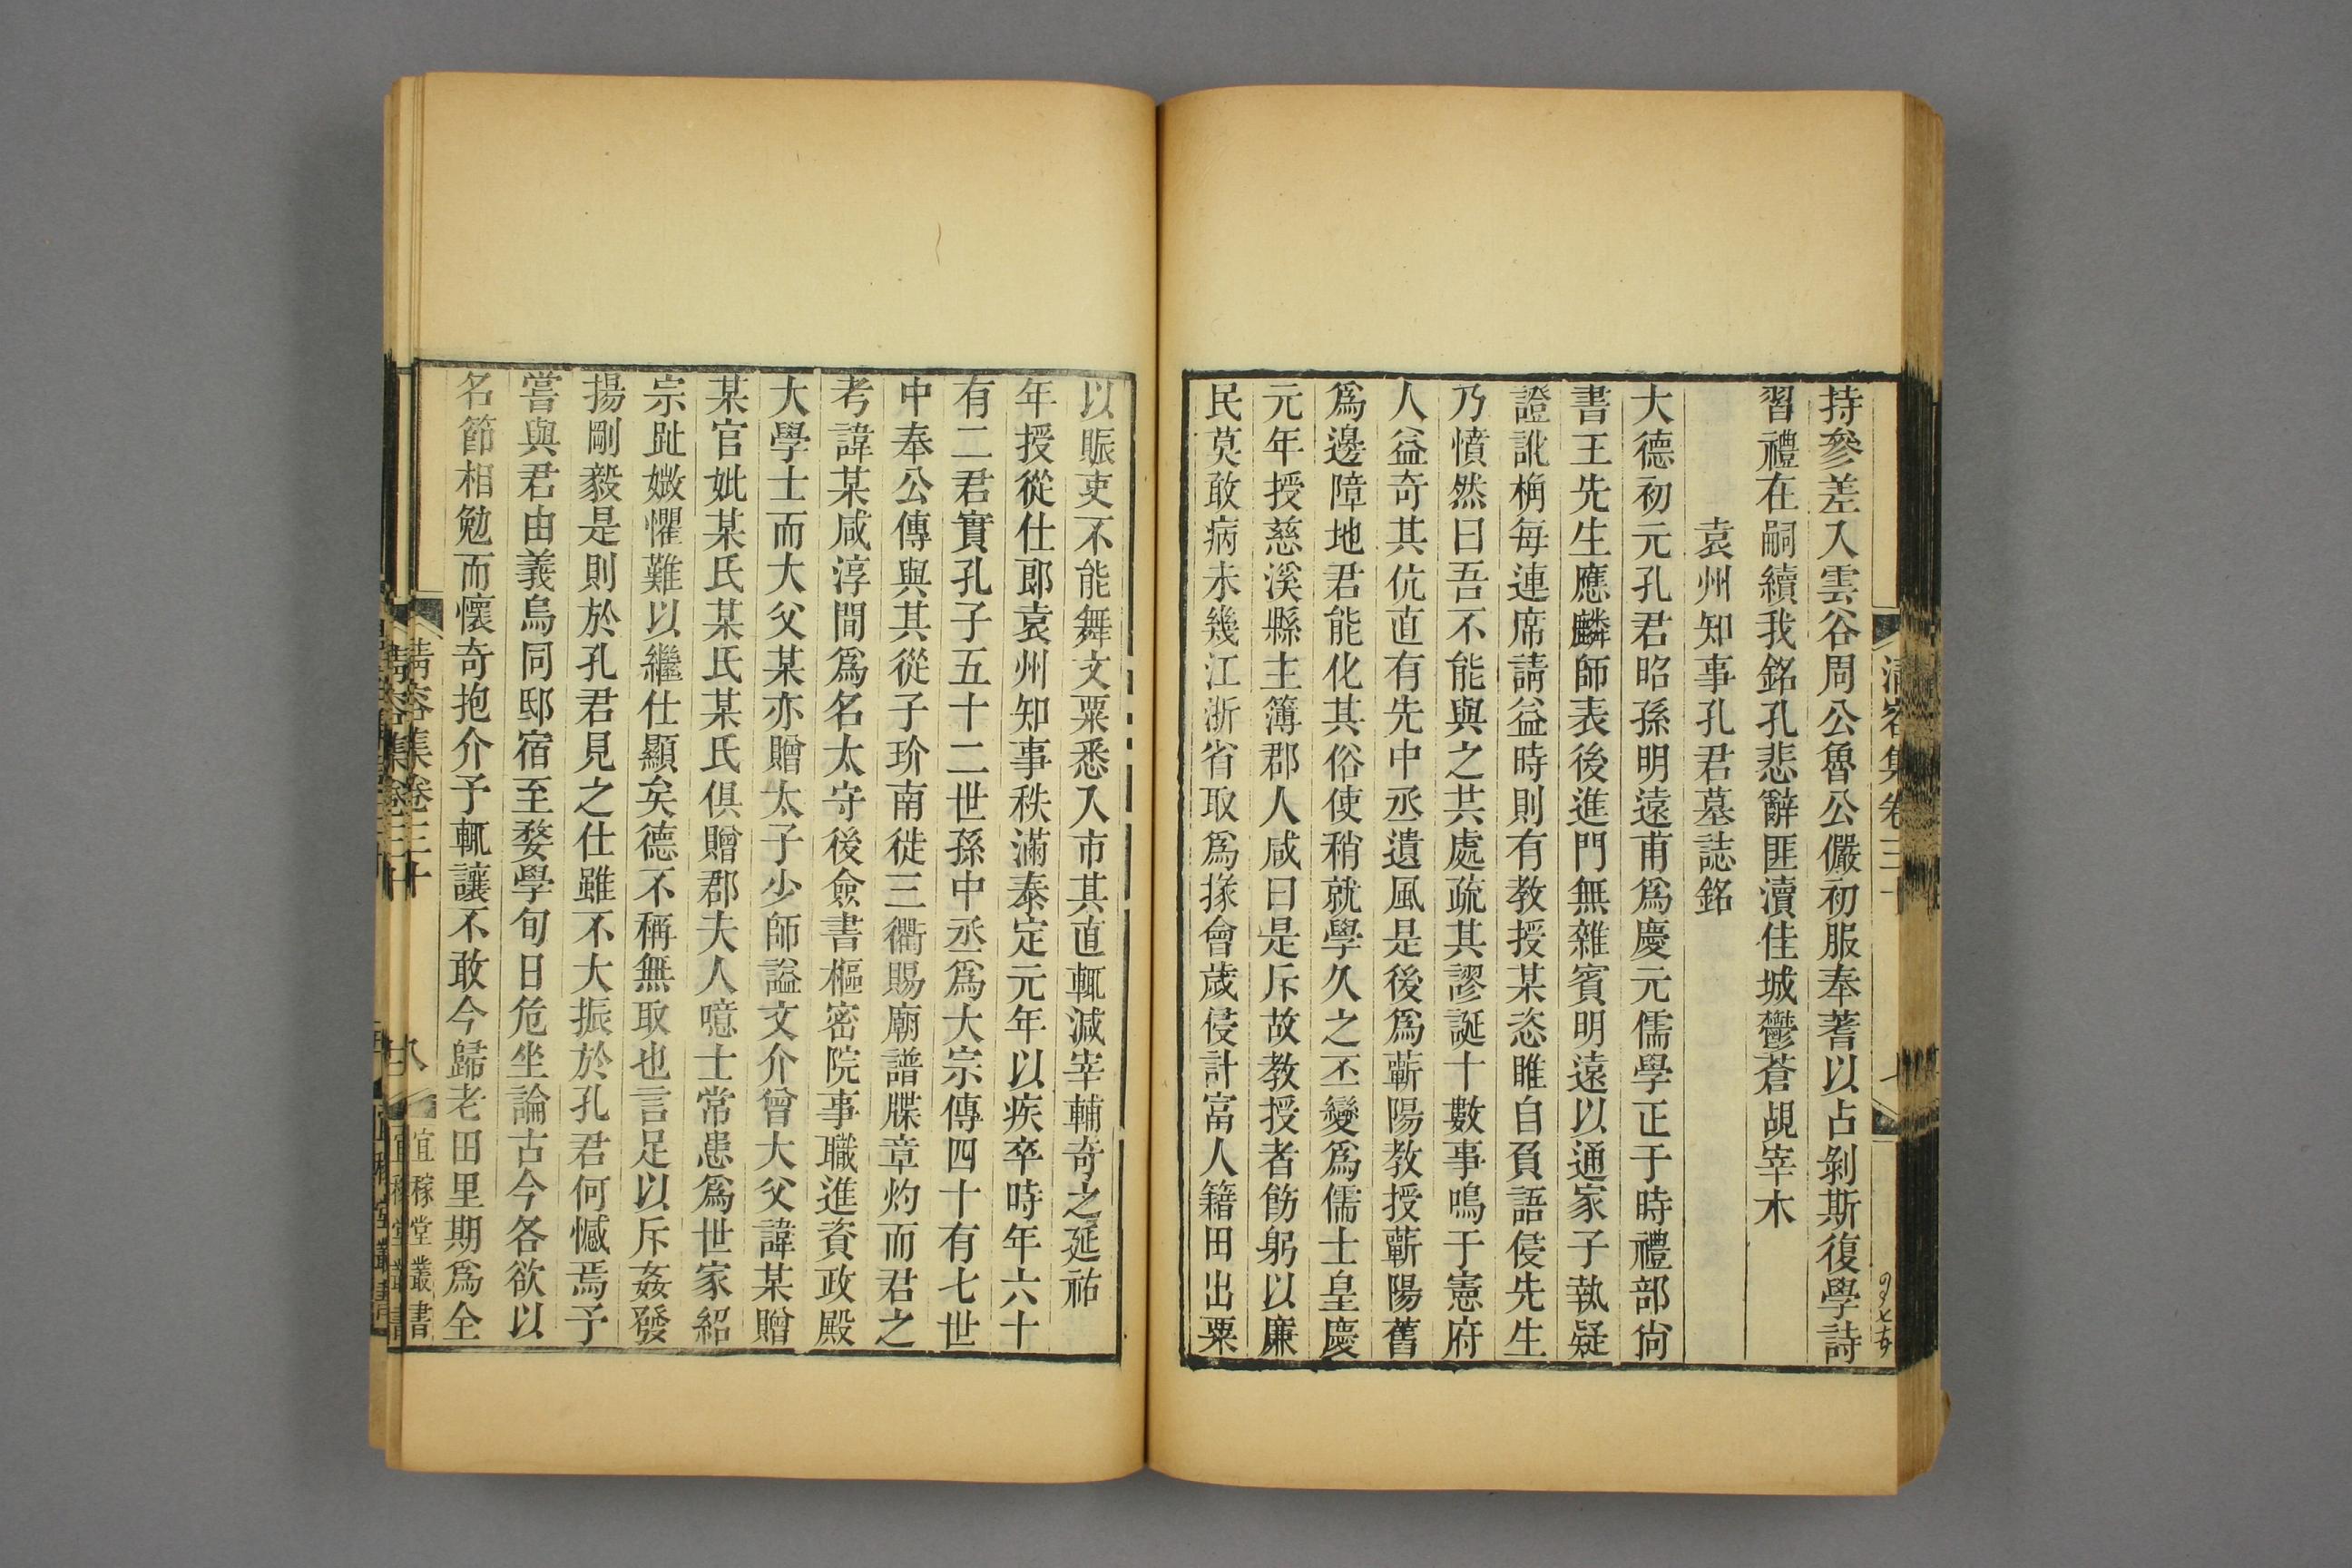 持參差入雲谷周公魯公儼初服奉蓍以占剝斯復學詩
習禮在嗣續我銘孔悲辭匪瀆佳城鬱蒼覘宰木
袁州知事孔君墓誌銘
大德初元孔君昭孫明遠甫爲慶元儒學正于時禮部尙
書王先生應麟師表後進門無雜賓明遠以通家子執疑
證訛桷每連席請益時則有教授某恣睢自負語侵先生
乃憤然曰吾不能與之共處疏其謬誕十數事鳴于憲府
人益奇其伉直有先中丞遺風是後爲蘄陽教授蘄陽舊
爲邊障地君能化其俗使稍就學久之丕變爲儒士皇慶
元年授慈溪縣主簿郡人咸曰是斥故教授者飭躬以廉
民莫敢病未幾江浙省取爲掾會歲侵計富人籍田出粟
以賑吏不能舞文粟悉入市其直輒減宰輔奇之延祐
年授從仕郎袁州知事秩滿泰定元年以疾卒時年六十
有二君實孔子五十二世孫中丞爲大宗傳四十有七世
中奉公傳與其從子玠南徙三衢賜廟譜牒章灼而君之
考諱某咸淳間爲名太守後僉書樞密院事職進資政殿
大學士而大父某亦贈太子少師謚文介曾大父諱某贈
某官妣某氏某氏某氏俱贈郡夫人噫士常患爲世家紹
宗趾媺懼難以繼仕顯矣德不稱無取也言足以斥姦發
揚剛毅是則於孔君見之仕雖不大振於孔君何憾焉予
嘗與君由義烏同邸宿至婺學旬日危坐論古今各欲以
名節相勉而懷奇抱介予輒讓不敢今歸老田里期爲全
清容集卷三十
八
宜稼堂叢書